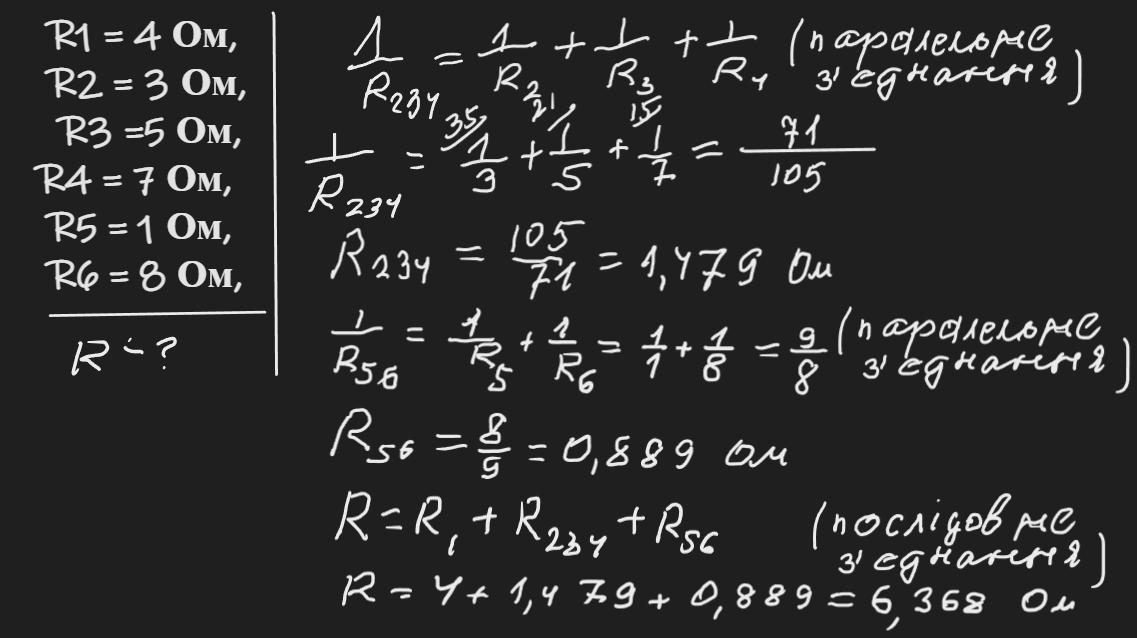 R1 = 4 Ом,
R2 = 3 Ом,
R3 =5 Ом,
R4 = 7 Ом,
R5 = 1 Ом,
R6 = 8 Ом,
R - ?
1/R234 = 1/R2 + 1/R3 + 1/R4 (паралельне з'єднання)
1/R234 = 35/ 1/3 + 21/ 1/5 + 15/ 1/7 = 71/105
R234 = 105/71 = 1,479 Ом
1/R56 = 1/R5 + 1/R6 = 1/1 + 1/8 = 9/8 (паралельне з'єднання)
R56 = 8/9 = 0,889 Ом
R = R1 + R234 + R56 (послідовне з'єднання)
R = 4 + 1,479 + 0,889 = 6,368 Ом